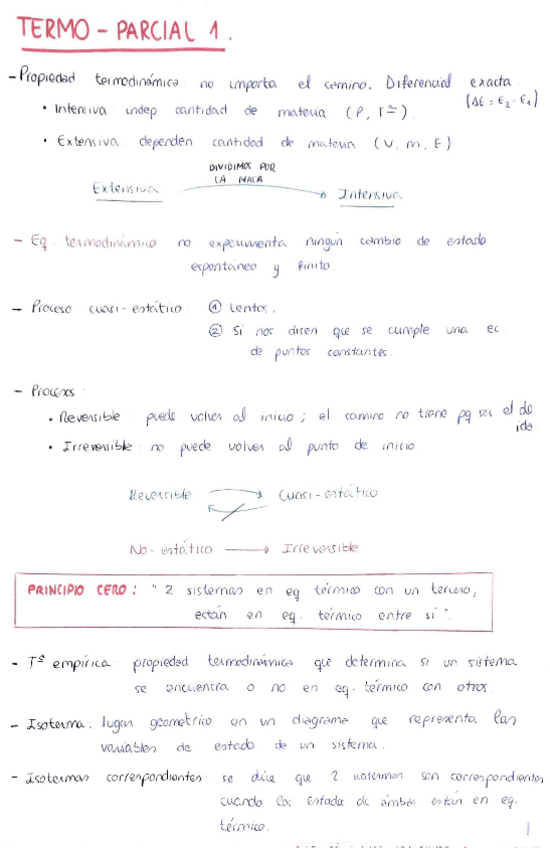 TERMO - PARCIAL 1.
- Propiedad termodinámica: no importa el camino. Diferencial exacta
(ΔE = E2 - E1)
• Intensiva: indep cantidad de materia. (P, Tª).
• Extensiva: dependen cantidad de materia (V, m, E)
DIVIDIMOS POR
LA MASA
Extensiva → Intensiva
- Eq termodinámico no experimenta ningún cambio de estado
espontáneo y finito.
- Proceso cuasi-estático: ① Lentos.
② Si nos dicen que se cumple una ec.
de puntos constantes.
- Procesos:
• Reversible: puede volver al inicio; el camino no tiene pq ser el de
ida.
• Irreversible: no puede volver al punto de inicio.
Reversible → Cuasi-estático
No-estático → Irreversible
PRINCIPIO CERO: "2 sistemas en eq térmico con un tercero,
están en eq. térmico entre sí".
- Tª empírica: propiedad termodinámica que determina si un sistema
se encuentra o no en eq. térmico con otros.
- Isoterma: lugar geométrico en un diagrama que representa las
variables de estado de un sistema.
- Isotermas correspondientes: se dice que 2 isotermas son correspondientes
cuando los estados de ambas están en eq.
térmico.
1